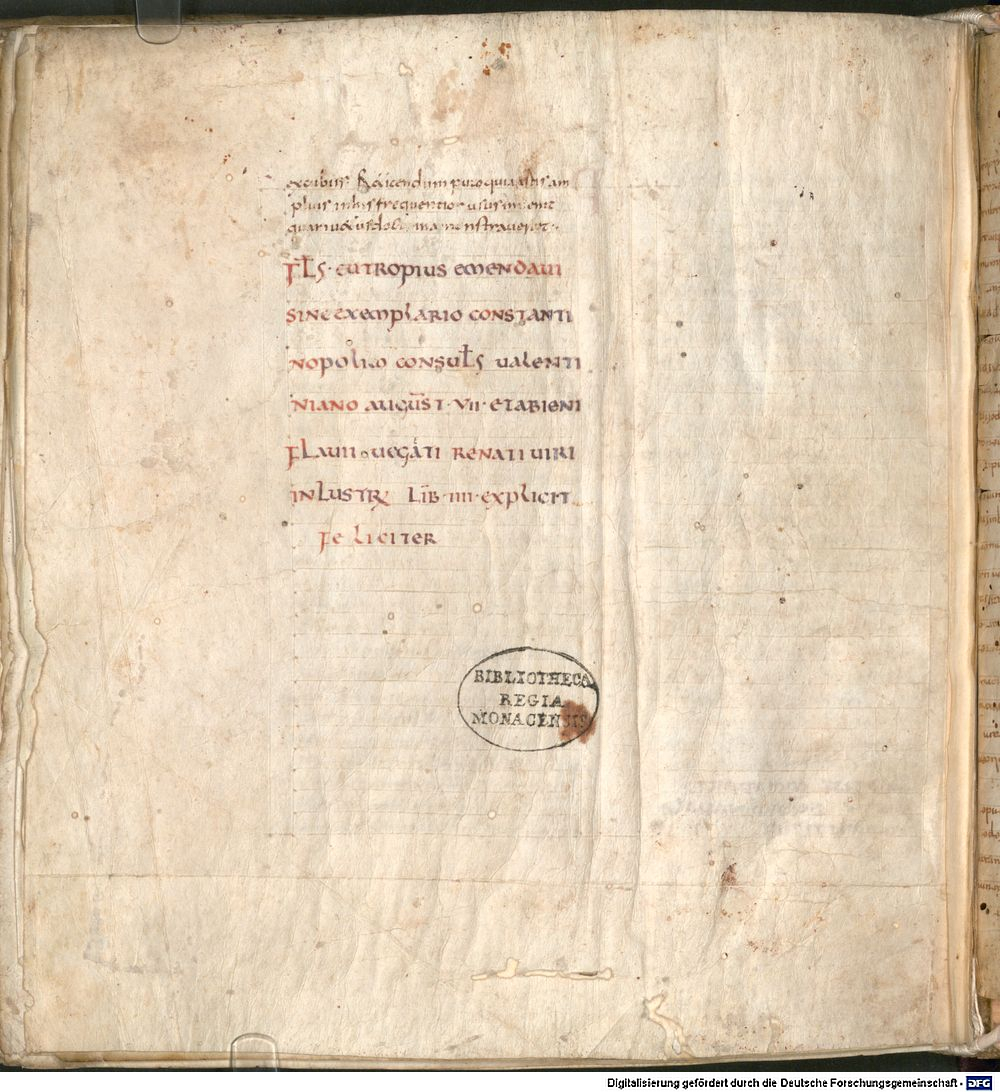 excubiis. Reticendum puto quia in his am
plius in his frequentior usus invenit
quam vetus doctrina monstraverat.
FLS. EUTROPIUS EMENDAVI
SINE EXEMPLARIO CONSTANTI
NOPOLITO CONSULS VALENTI
NIANO AUGUST. VII. ET ABIENI
FLAVII. VEGATI RENATI VIRI
INLUSTR LIB. IIII. EXPLICIT
FELICITER
BIBLIOTHECA
REGIA
MONACENSIS
Digitalisierung gefördert durch die Deutsche Forschungsgemeinschaft - DFG